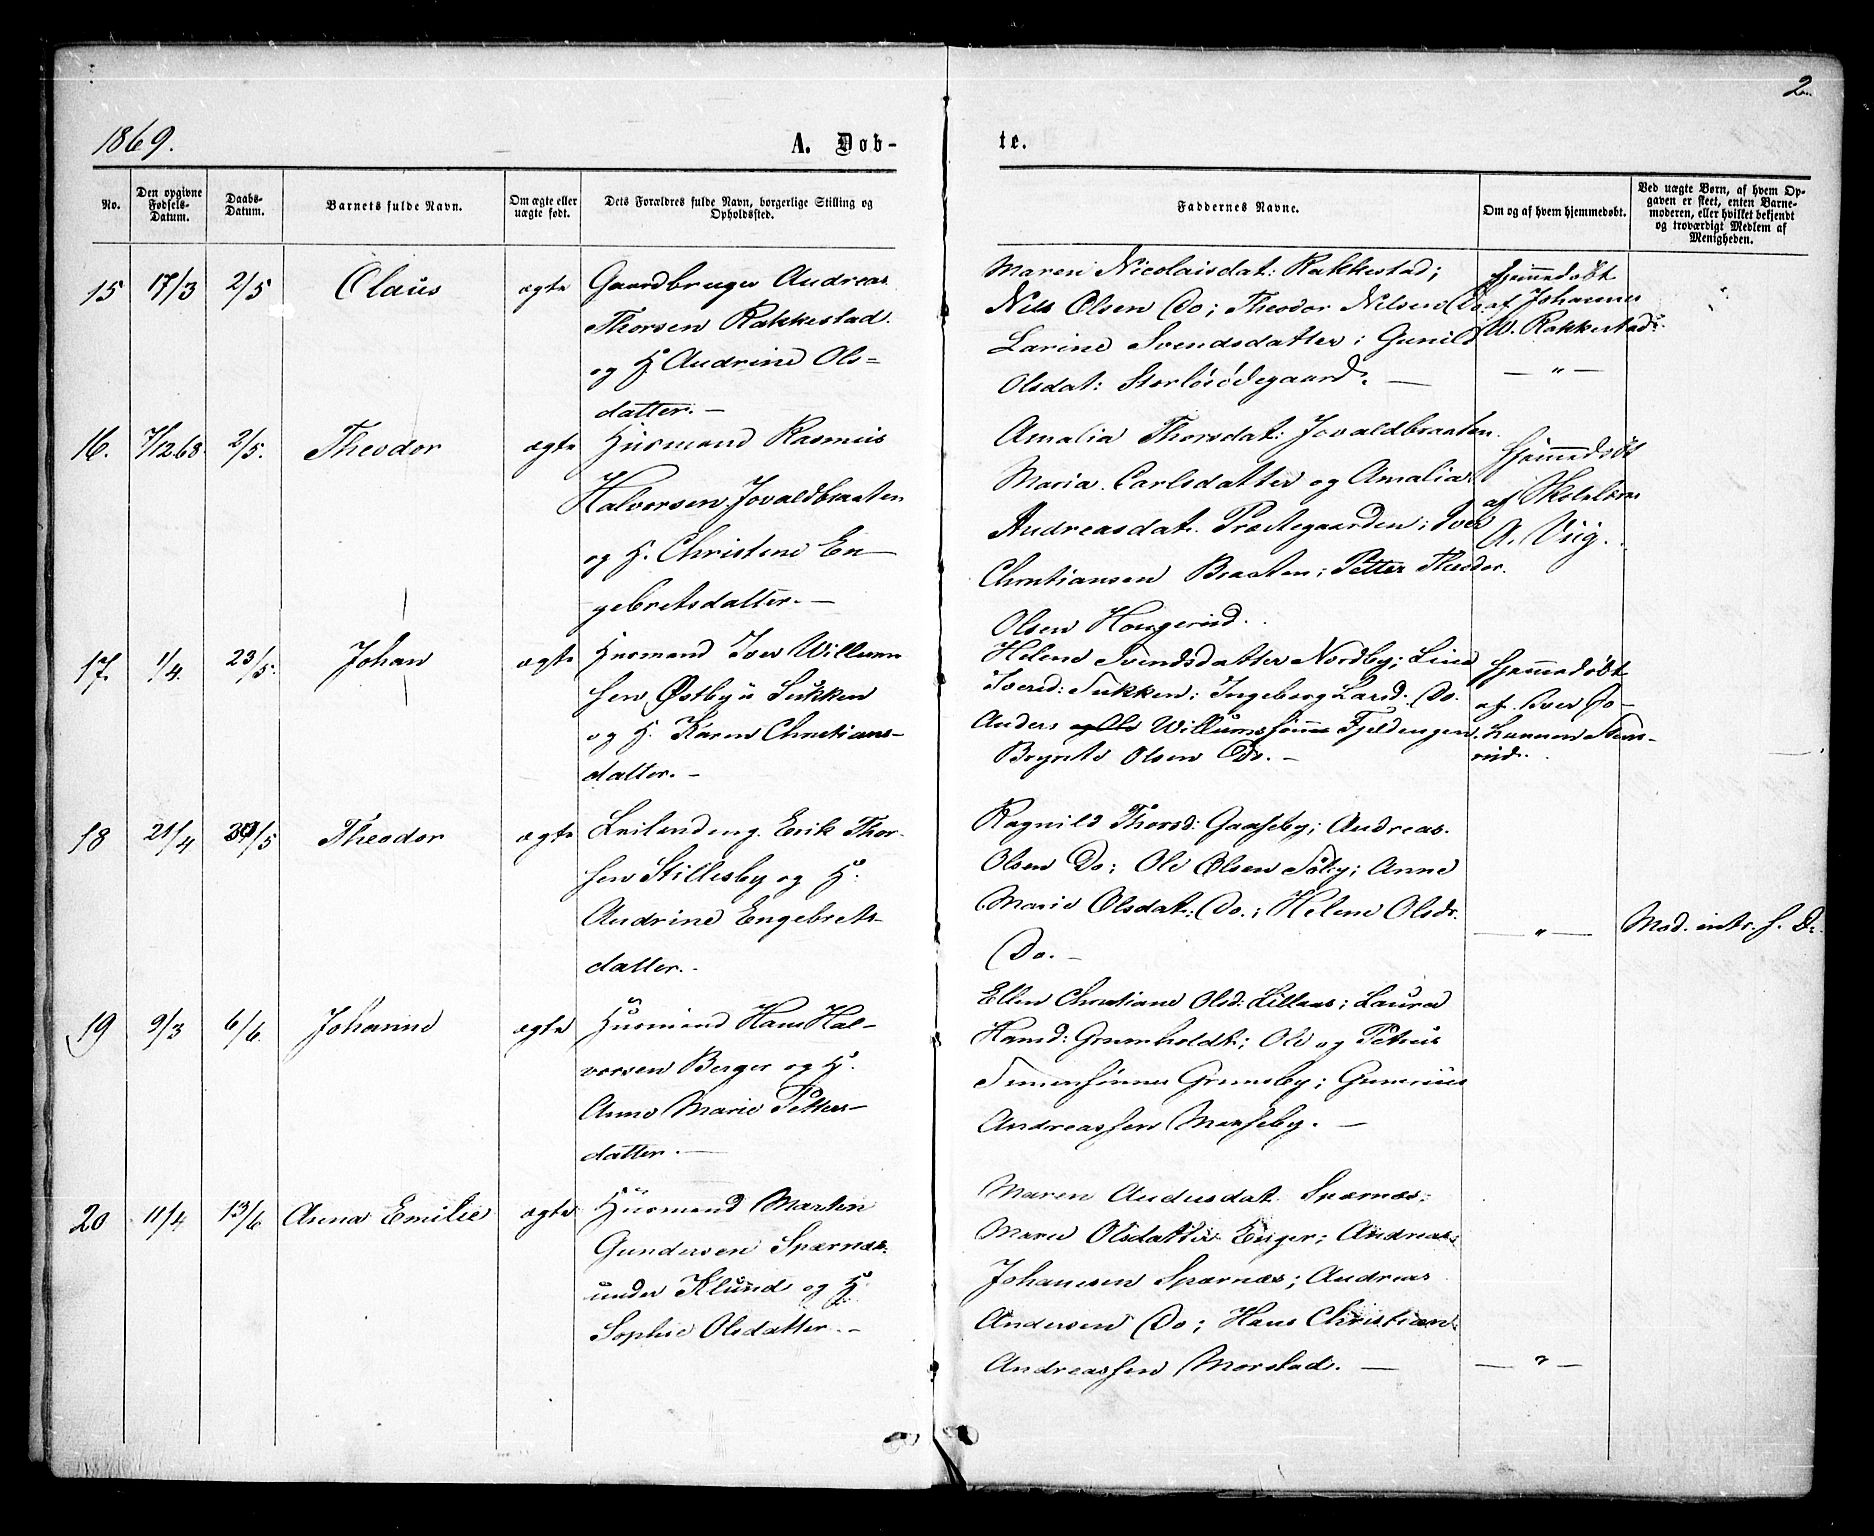 2
1869.
A. Dob-
te.
No.
Den opgivne Fødsels-Datum.
Daabs-Datum.
Barnets fulde Navn.
Om ægte eller uægte født.
Dets Forældres fulde Navn, borgerlige Stilling og Opholdssted.
Faddernes Navne.
Om og af hvem hjemmedøbt.
Ved uægte Børn, af hvem Opgaven er skeet, enten Barnemoderen, eller hvilket bekjendt og troværdigt Medlem af Menigheden.
15 17/3 2/5 Olaus ægte
Gaardbruger Andreas
Thorsen Rakkestad
og H Andrine Ols-
datter. –
Maren Nicolaisdat: Rakkestad;
Nils Olsen Do; Theodor Nilsen Do
Larine Svendsdatter; Gunild
Olsdat:
Hjemmedøbt
af Johannes
Rakkestad.
— " —
16. 7/12 68 2/5. Theodor ægte
Husmand Rasmus
Halvorsen Jovaldbraaten
og H. Christine En–
gebretsdatter. –
Amalia Thorsdat: Jovaldbraaten
Maria Carlsdatter og Amalia
Andreasdat. Præstegaarden; Iver
Christiansen Braaten; Petter Theodor
Olsen Haugerud.
Hjemmedøbt
af
17. 1/4. 23/5. Johan ægte
Husmand Iver Willum
sen Østby u Sukken
og H. Karen Christians-
datter. –
Helene Svendsdatter Nordby; Line
Sukken; Ingeborg Larsd. Do.
Anders og Ole Willumssønner Fjeldengen.
Olsen Do. –
Hjemmedøbt
af Iver Jo-
18 21/4 /5 Theodor ægte
Leilending. Erik Thor-
sen Stillesby og H.
Andrine Engebrets
datter. -
Ragnild Thorsd: Gaaseby; Andreas
Olsen Do; Ole Olsen; Anne
Marie Olsdat: Do.; Helene Olsdr.
Do. –
— " —
19 9/3 6/6. Johanne ægte
Husmand Hans Hal-
vorsen Berger og H.
Anne Marie Petters-
datter. –
Ellen Christiane Olsd: Lillaas; Laura
Hansd: Grumholdt; Ole og Petrus
Simensønner Grimsby; Gunerius
Andreassen. –
20 11/4 13/6 Anna Emilie ægte
Husmand Martin
Gundersen Spærnæs
under Klund og H
Sophie Olsdatter. –
Maren Andersdat. Spærnæs;
Maren Olsdatter Enger; Andreas
Johanesen Spærnæs; Andreas
Andersen Do; Hans Christian
Andreassen Morstad. —
— " —